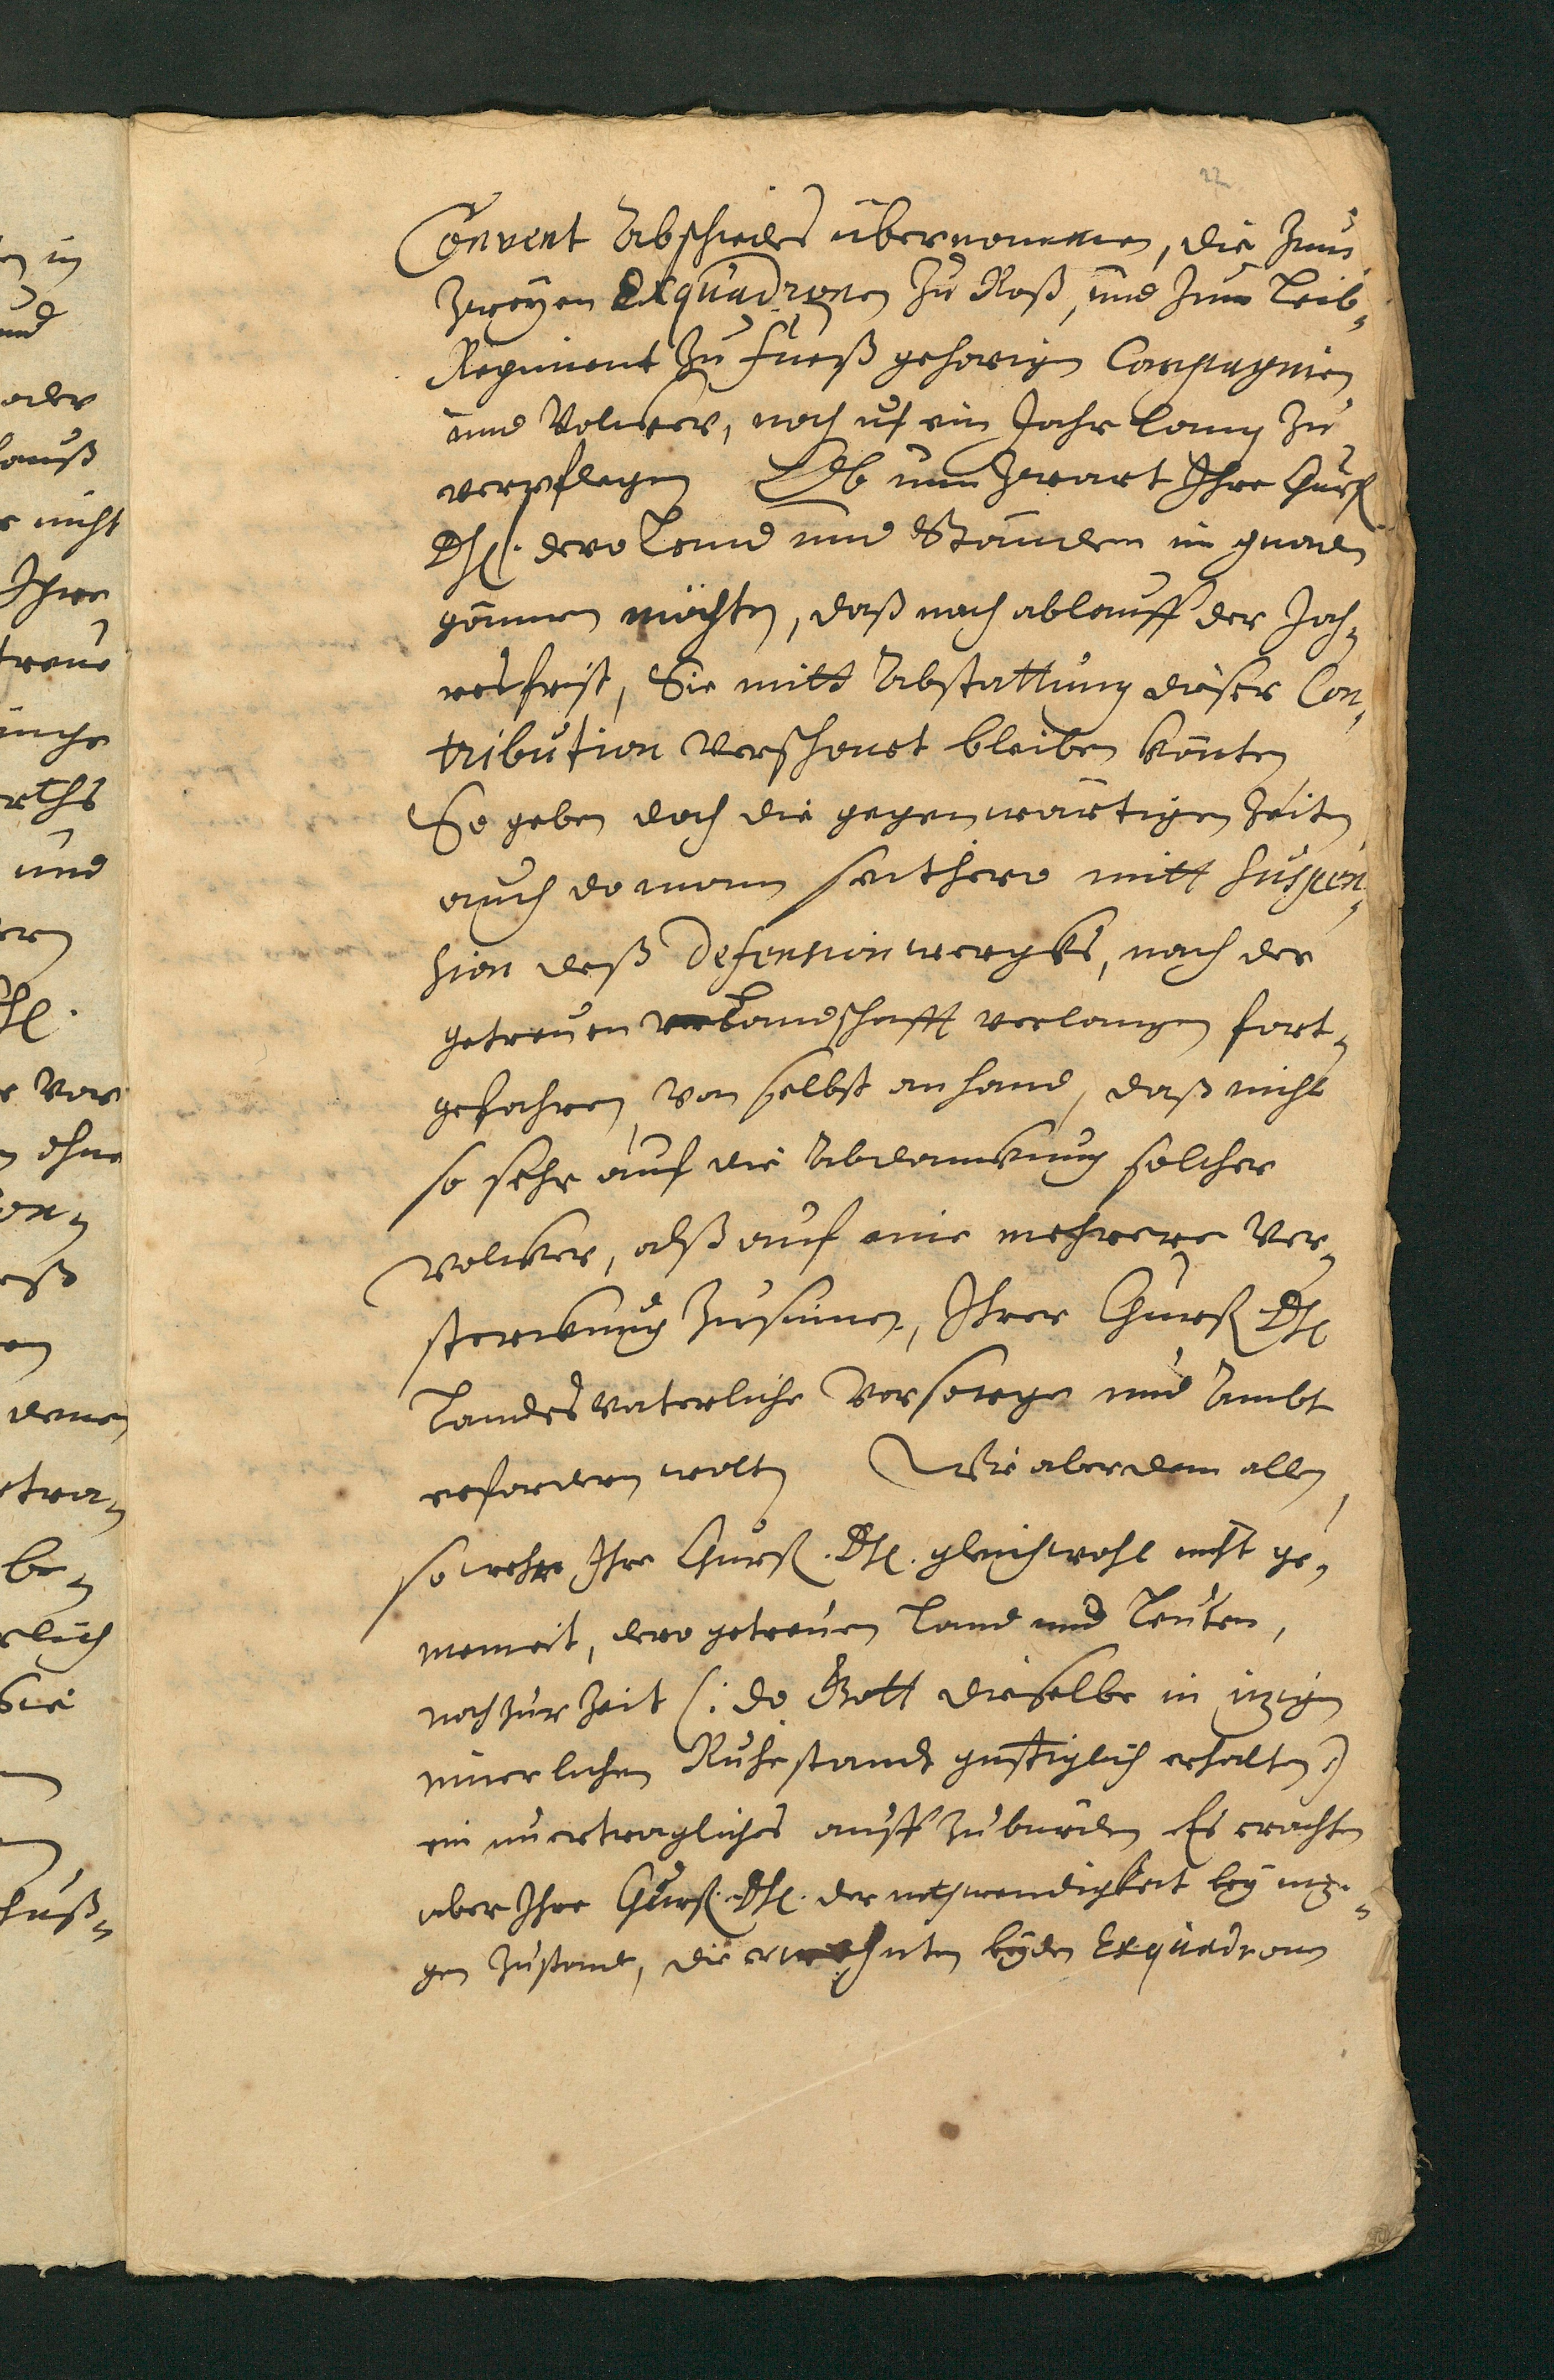 22
Convent Abschiedes übernommen, die zum
zweyen Exquadronen zu Roß, und zum Leib¬
Regiment zu Fueß gehorigen Compagnien
und Volcker, noch uf ein Jahr lang zu
verpflegen Ob nun zwart Ihre Churf
Dhl. dero Land und Ständen in gnaden
gönnen möchten, daß nach ablauff der Jah¬
resfrist, Sie mitt Abstattung dieser Con¬
tribution verschonet bleiben könten
So geben doch die gegenwärtigen Zeiten
auch do mann seithero mitt suspen¬
sion deß Defensionwergks, nach der
getreuen Landschafft verlangen fort¬
gefahren, von selbst an hand, daß nicht
so sehr auf die Abdanckung solcher
Volcker, alß auf eine mehrere Ver¬
sterckung zusinnen, Ihrer Churf Dhl
Landesvaterliche Vorsorge und Ambt
erfordern wolten Wie aber dem allen
so wehre Ihre Churf. Dhl. gleichwohl nicht ge¬
meineit, dero getreuen Land und Leuten,
noch zur Zeit (: do Gott dieselbe in izigen
innerlichen Ruhestandt gnstiglich erhalten :)
ein unertragliches auff zuburden Es erachten
aber Ihre Churf. Dhl. der nothwendigkeit bey izi¬
gen Zustand, die erwehnten beyden Exquadronen
en in
und
oder
nicht
Ihre
treue
und
Dhl.
vor
ohne
con¬
denen
be¬
Sie